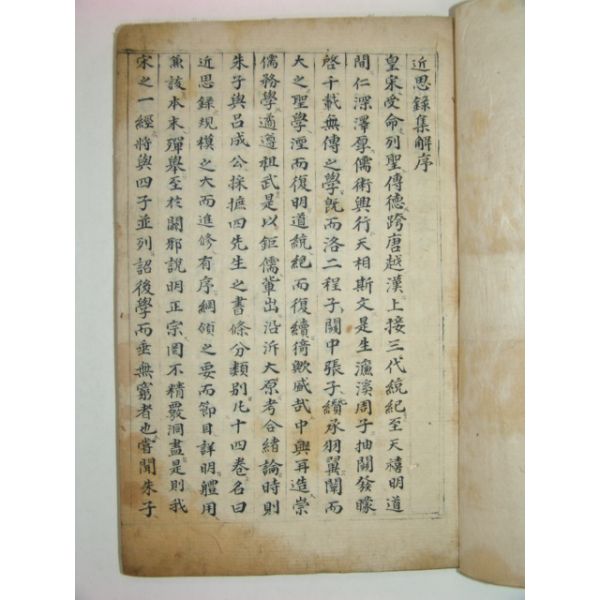 近思録集解序
皇宋受命列聖傳德跨唐越漢上接三代統紀至天禧明道
間仁深澤厚儒術興行天相斯文是生濂溪周子抽關發矇
啓千載無傳之學既而洛二程子關中張子纉承羽翼闡而
大之聖學湮而復明道統絶而復續猗歟盛哉中興再造崇
儒務學遹遵祖武是以鉅儒軰出沿泝大原考合緒論時則
朱子與呂成公採摭四先生之書條分類別凡十四卷名曰
近思録規模之大而進修有序綱領之要而節目詳明軆用
兼該本末殫舉至於闢邪說明正宗罔不精覈洞盡是則我
宋之一經將與四子並列詔後學而垂無窮者也嘗聞朱子